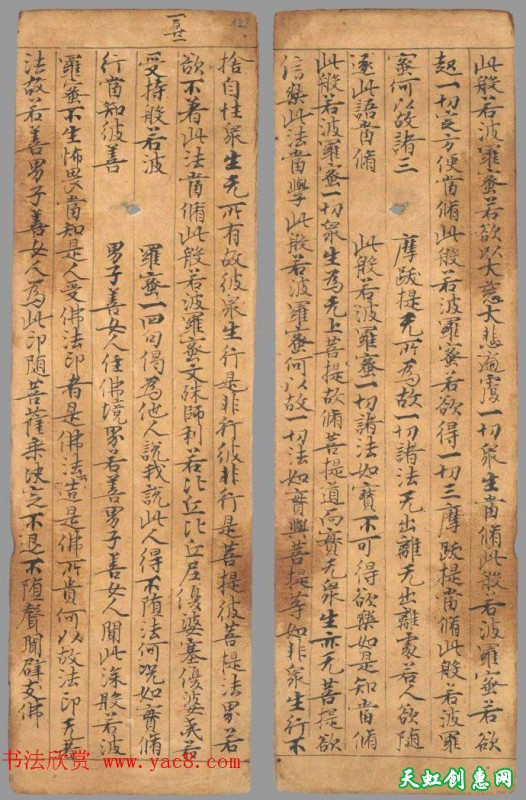 此般若波羅蜜若欲以大慈大悲遍覆一切衆生當脩此般若波羅蜜若欲
起一切定方便當脩此般若波羅蜜若欲得一切三摩跋提當脩此般若波羅
蜜何以故諸三 摩跋提无所為故一切諸法无出離无出離處若人欲随
逐此語當脩 此般若波羅蜜一切諸法如實不可得欲樂如是知當脩
此般若波羅蜜一切衆生為无上菩提故脩菩提道而實无衆生亦无菩提欲
信樂此法當學此般若波羅蜜何以故一切法如實與菩提等如非衆生行不
捨自性衆生无所有故彼衆生行是非行彼非行是菩提彼菩提法界若
欲不著此法當脩此般若波羅蜜文殊師利若比丘比丘尼優婆塞優婆夷若
受持般若波 羅蜜一四句偈為他人說我說此人得不堕法何況如實脩
行當知彼善 男子善女人住佛境界若善男子善女人聞此深般若波
羅蜜不生怖畏當知是人受佛法印者是佛法造是佛所貴何以故法印无著
法故若善男子善女人為此印随菩薩乘決定不退不堕聲聞辟支佛
书法欣赏
www.yac8.com
天虹创惠网